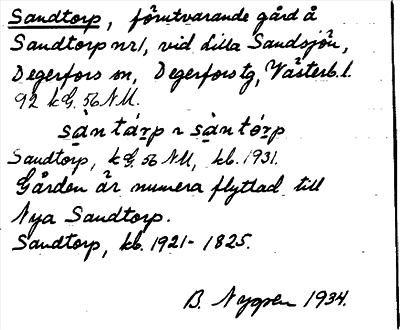 Sandtorp, förutvarande gård å
Sandtorp nr 1, vid Lilla Sandsjön,
Degerfors sn, Degerfors tg, Västerb. l.
92 kG. 56 NM.
sàntárp ~ sàntórp
Sandtorp, kG. 56 NM, kb. 1931.
Gården är numera flyttad till
Nya Sandtorp.
Sandtorp, kb. 1921-1825.
B. Nygren 1934.